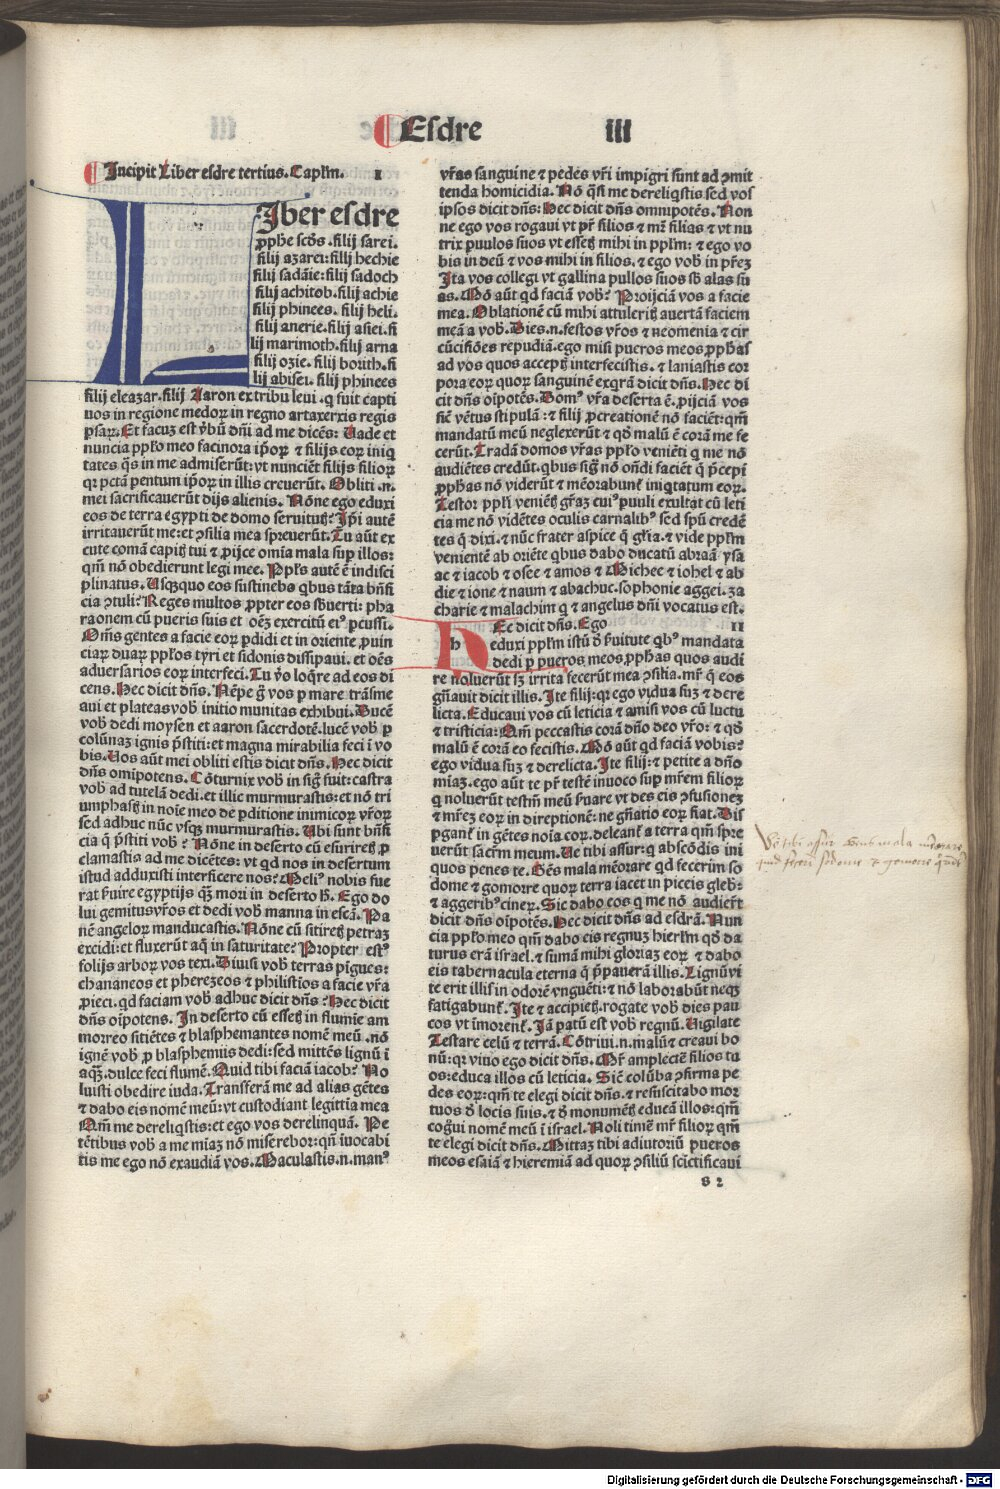 Esdre III
Incipit Liber esdre tertius. Caplm. I
Iber esdre
ꝓphe scds. filij sarei.
filij azarei: filij hechie
filij sadãie: filij sadoch
filij achitob. filij achie
filij phinees. filij heli.
filij anerie. filij asiei. fi
lij marimoth. filij arna
filij ozie. filij borith. fi
lij abisei. filij phinees
filij eleazar. filij Aaron ex tribu leui. q fuit capti
uos in regione medoꝝ in regno artaxerxis regis
psaꝝ. Et factuz est ṽbũ dñi ad me dicẽs: Uade et
nuncia pplo meo facinora ipoꝝ ⁊ filijs eoꝝ iniq
tates qs in me admiserũt: vt nunciẽt filijs filioꝝ
qꝛ pctã pentum ipoꝝ in illis creuerũt. Obliti .n.
mei sacrificauerũt dijs alienis. Nõne ego eduxi
eos de terra egypti de domo seruitutꝭ? Ipi autẽ
irritauerũt me: et ꝯsilia mea spreuerũt. Tu aũt ex
cute comã capitꝭ tui ⁊ ꝓijce omia mala sup illos:
qm̃ nõ obedierunt legi mee. Ppls autẽ ẽ indisci
plinatus. Usqzquo eos sustinebo qbus tãta bñfi
cia ꝯtuli? Reges multos ꝓpter eos sbuerti: pha
raonem cũ pueris suis et oẽꝫ exercitũ eiꝰ pcussi.
Oms gentes a facie eoꝝ pdidi et in oriente ꝓuin
ciaꝝ duaꝝ pplos tyri et sidonis dissipaui. et oẽs
aduersarios eoꝝ interfeci. Tu ṽo loqre ad eos di
cens. Hec dicit dñs. Nẽpe g̃ vos p mare trãsme
aui et plateas vob initio munitas exhibui. Ducẽ
vob dedi moysen et aaron sacerdotẽ. lucẽ vob p
colũnaz ignis p̃stiti: et magna mirabilia feci ĩ vo
bis. Uos aũt mei obliti estis dicit dñs. Hec dicit
dñs omipotens. Cõturnix vob in sig̃ fuit: castra
vob ad tutelã dedi. et illic murmurastis: et nõ tri
umphastꝭ in noie meo de pditione inimicoꝝ vr̃oꝝ
sed adhuc nũc vsqꝫ murmurastis. Ubi sunt bñfi
cia q̃ p̃stiti vob? Nõne in deserto cũ esuriretꝭ ꝓ
clamastis ad me dicẽtes: vt qd nos in desertum
istud adduxisti interficere nos? Meliꝰ nobis fue
rat s̃uire egyptijs qꝫ mori in deserto h̃. Ego do
lui gemitus vr̃os et dedi vob manna in escã. Pa
nẽ angeloꝝ manducastis. Nõne cũ sitiretꝭ petraꝫ
excidi: et fluxerũt aq̃ in saturitate? Propter estꝰ
folijs arboꝝ vos texi. Diuisi vob terras pĩgues:
chananeos et pherezeos ⁊ philistios a facie vr̃a
ꝓieci. qd faciam vob adhuc dicit dñs? Hec dicit
dñs oĩpotens. In deserto cũ essetꝭ in flumie am
morreo sitiẽtes ⁊ blasphemantes nomẽ meũ. nõ
ignẽ vob ꝓ blasphemijs dedi: sed mittẽs lignũ ĩ
aqꝫ. dulce feci flumẽ. Quid tibi faciã iacob? No
luisti obedire iuda. Transferã me ad alias gẽtes
⁊ dabo eis nomẽ meũ: vt custodiant legittia mea
Qm̃ me dereliqstis: et ego vos derelinquã. Pe
tẽtibus vob a me miaꝫ nõ miserebor: qñ ĩuocabi
tis me ego nõ exaudiã vos. Maculastis .n. manꝰ
vr̃as sanguine ⁊ pedes vr̃i impigri sunt ad ꝯmit
tenda homicidia. Nõ qsi me dereliqstis sed vos
ipsos dicit dñs: Hec dicit dñs omnipotẽs. Non
ne ego vos rogaui vt pr̃ filios ⁊ mr̃ filias ⁊ vt nu
trix puulos suos vt essetꝭ mihi in pplm: ⁊ ego vo
bis in deũ ⁊ vos mihi in filios. ⁊ ego vob in pr̃eꝫ
Ita vos collegi vt gallina pullos suos sb alas su
as. Mõ aũt qd faciã vob? Proijciã vos a facie
mea. Oblationẽ cũ mihi attuleritꝭ auertã faciem
meã a vob. Dies .n. festos vr̃os ⁊ neomenia ⁊ cir
cũcisiões repudiã. ego misi pueros meos ꝓphas
ad vos quos acceptꝭ interfecistis. ⁊ laniastis cor
pora eoꝝ quoꝝ sanguinẽ exqrã dicit dñs. Hec di
cit dñs oĩpotẽs. Domꝰ vr̃a deserta ẽ. ꝓijciã vos
sic̃ vẽtus stipulã: ⁊ filij ꝓcreationẽ nõ faciẽt: qm̃
mandatũ meũ neglexerũt ⁊ qd malũ ẽ corã me fe
cerũt. Tradã domos vr̃as pplo veniẽti q me nõ
audiẽtes credũt. qbus sig̃ nõ oñdi faciẽt q̃ p̃cepi
ꝓphas nõ viderũt ⁊ mẽorabunt̃ iniqtatum eoꝝ.
Testor ppli veniẽtꝭ gr̃aꝫ cuiꝰ puuli exultãt cũ leti
cia me nõ vidẽtes oculis carnalibꝰ sed spũ credẽ
tes q̃ dixi. ⁊ nũc frater aspice q̃ gl̃ia. ⁊ vide pplm
venientẽ ab oriẽte qbus dabo ducatũ abraã ysa
ac ⁊ iacob ⁊ osee ⁊ amos ⁊ Michee ⁊ iohel ⁊ ab
die ⁊ ione ⁊ naum ⁊ abachuc. sophonie aggei. za
charie ⁊ malachim q ⁊ angelus dñi vocatus est.
Ec dicit dñs. Ego II
h eduxi pplm istũ d̃ s̃uitute qbꝰ mandata
dedi p pueros meos ꝓphas quos audi
re noluerũt sꝫ irrita fecerũt mea ꝯsilia. mr̃ q̃ eos
gñauit dicit illis. Ite filij: qꝛ ego vidua suꝫ ⁊ dere
licta. Educaui vos cũ leticia ⁊ amisi vos cũ luctu
⁊ tristicia: Qm̃ peccastis corã dño deo vr̃o: ⁊ qd
malũ ẽ corã eo fecistis. Mõ aũt qd faciã vobis?
ego vidua suꝫ ⁊ derelicta. Ite filij: ⁊ petite a dño
miaꝫ. ego aũt te pr̃ testẽ inuoco sup mr̃em filioꝝ
q noluerũt testm̃ meũ s̃uare vt des eis ꝯfusioneꝫ
⁊ mr̃eꝫ eoꝝ in direptionẽ: ne gñatio eoꝝ fiat. Dis
pgant̃ in gẽtes noĩa eoꝝ. deleant̃ a terra qm̃ spre
uerũt sacr̃m meum. Ue tibi assur: q abscõdis ini
quos penes te. Gẽs mala mẽorare qd fecerim so
dome ⁊ gomorre quoꝝ terra iacet in piceis gleb:
⁊ aggeribꝰ cineꝝ. Sic dabo eos q me nõ audier̃t
dicit dñs oĩpotẽs. Hec dicit dñs ad esdrã. Nun
cia pplo meo qm̃ dabo eis regnuꝫ hierlm qd da
turus erã israel. ⁊ sumã mihi gloriaꝫ eoꝝ ⁊ dabo
eis tabernacula eterna q̃ p̃paueram illis. Lignũ vi
te erit illis in odorẽ vnguẽti: ⁊ nõ laborabũt neqꝫ
fatigabunt̃. Ite ⁊ accipietꝭ. rogate vob dies pau
cos vt ĩmorent̃. Iã patũ est vob regnũ. Uigilate
Testare celũ ⁊ terrã. Cõtriui .n. malũ ⁊ creaui bo
nũ: qꝛ viuo ego dicit dñs. Mr̃ amplectẽ filios tu
os: educa illos cũ leticia. Sic̃ colũba ꝯfirma pe
des eoꝝ: qm̃ te elegi dicit dñs. ⁊ resuscitabo mor
tuos d̃ locis suis. ⁊ d̃ monumẽtꝭ educã illos: qm̃
cog̃ui nomẽ meũ ĩ israel. Noli timẽ mr̃ filioꝝ qm̃
te elegi dicit dñs. Mittaꝫ tibi adiutoriũ pueros
meos esaiã ⁊ hieremiã ad quoꝝ ꝯsiliũ sctificaui
S 2
Ve tibi assur Gens mala memorare
quid fecerim sodome et gomorre
Digitalisierung gefördert durch die Deutsche Forschungsgemeinschaft - DFG